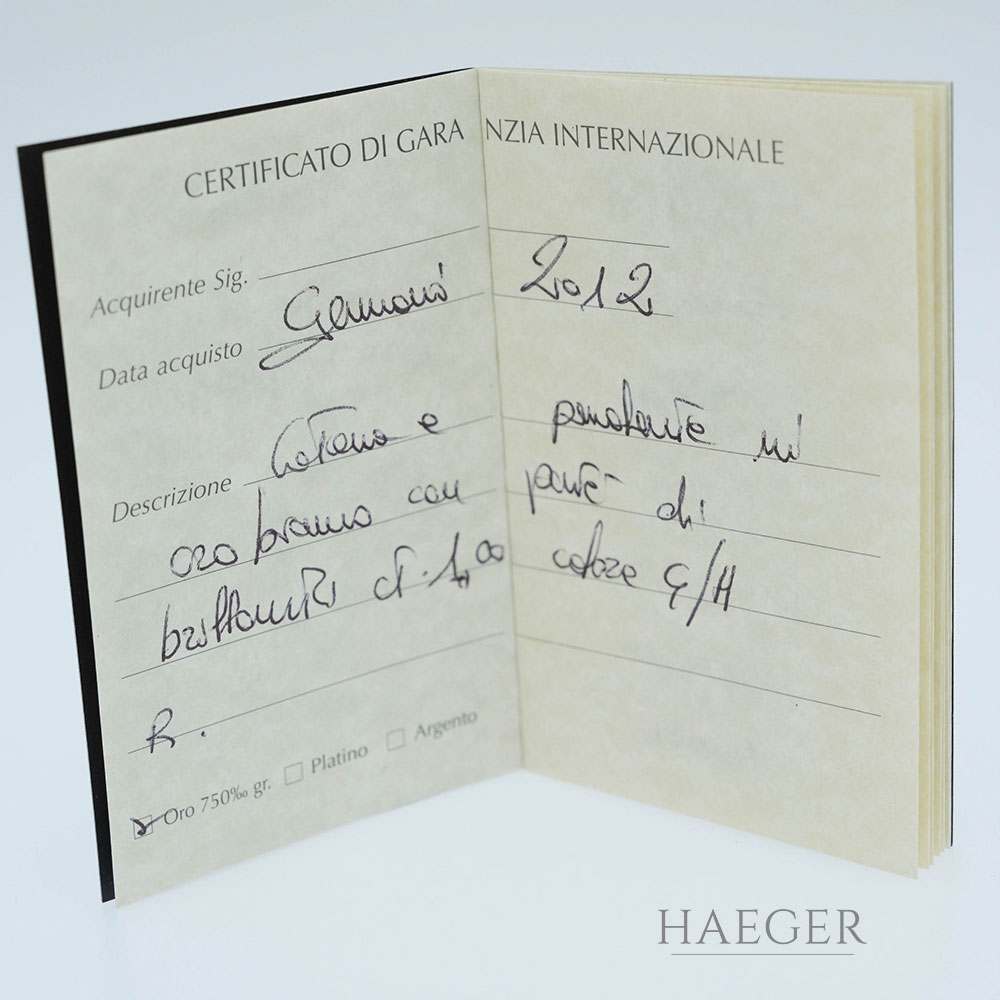 CERTIFICATO DI GARANZIA INTERNAZIONALE
Acquirente Sig.
Data acquisto Gennaio 2012
Descrizione Catena e pendente in
oro bianco con pavé di
brillanti ct. 1,00 colore G/H
R.
Oro 750‰ gr. Platino Argento
HAEGER